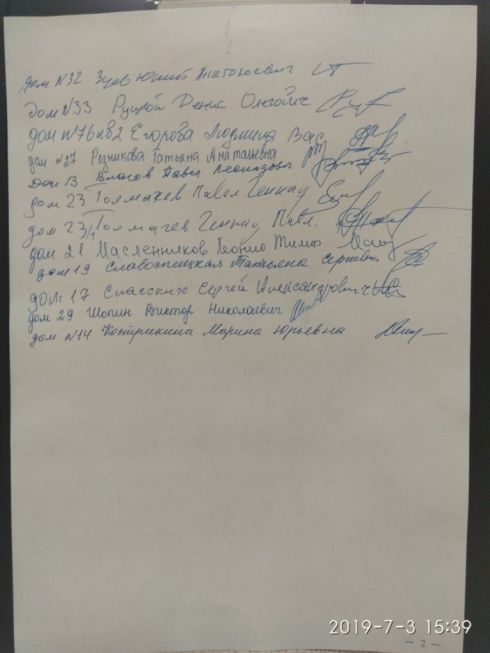 дом N32 Зуев Юрий Анатольевич
дом N33 Руцкой Денис
дом N76 кв2 Егорова Людмила Вас
дом N27 Резникова Татьяна Анатольевна
дом 13 Власов Павел Леонидович
дом 23 Толмачев Павел Геннад
дом 23/1 Толмачев Геннад Павл.
дом 21 Масленников Тимо
дом 19 Слабоспицкая Татьяна Сергеевна
дом 17 Спасских Сергей Александрович
дом 29 Шопин Виктор Николаевич
дом N14 Кострикина Марина Юрьевна
2019-7-3 15:39
– 2 –